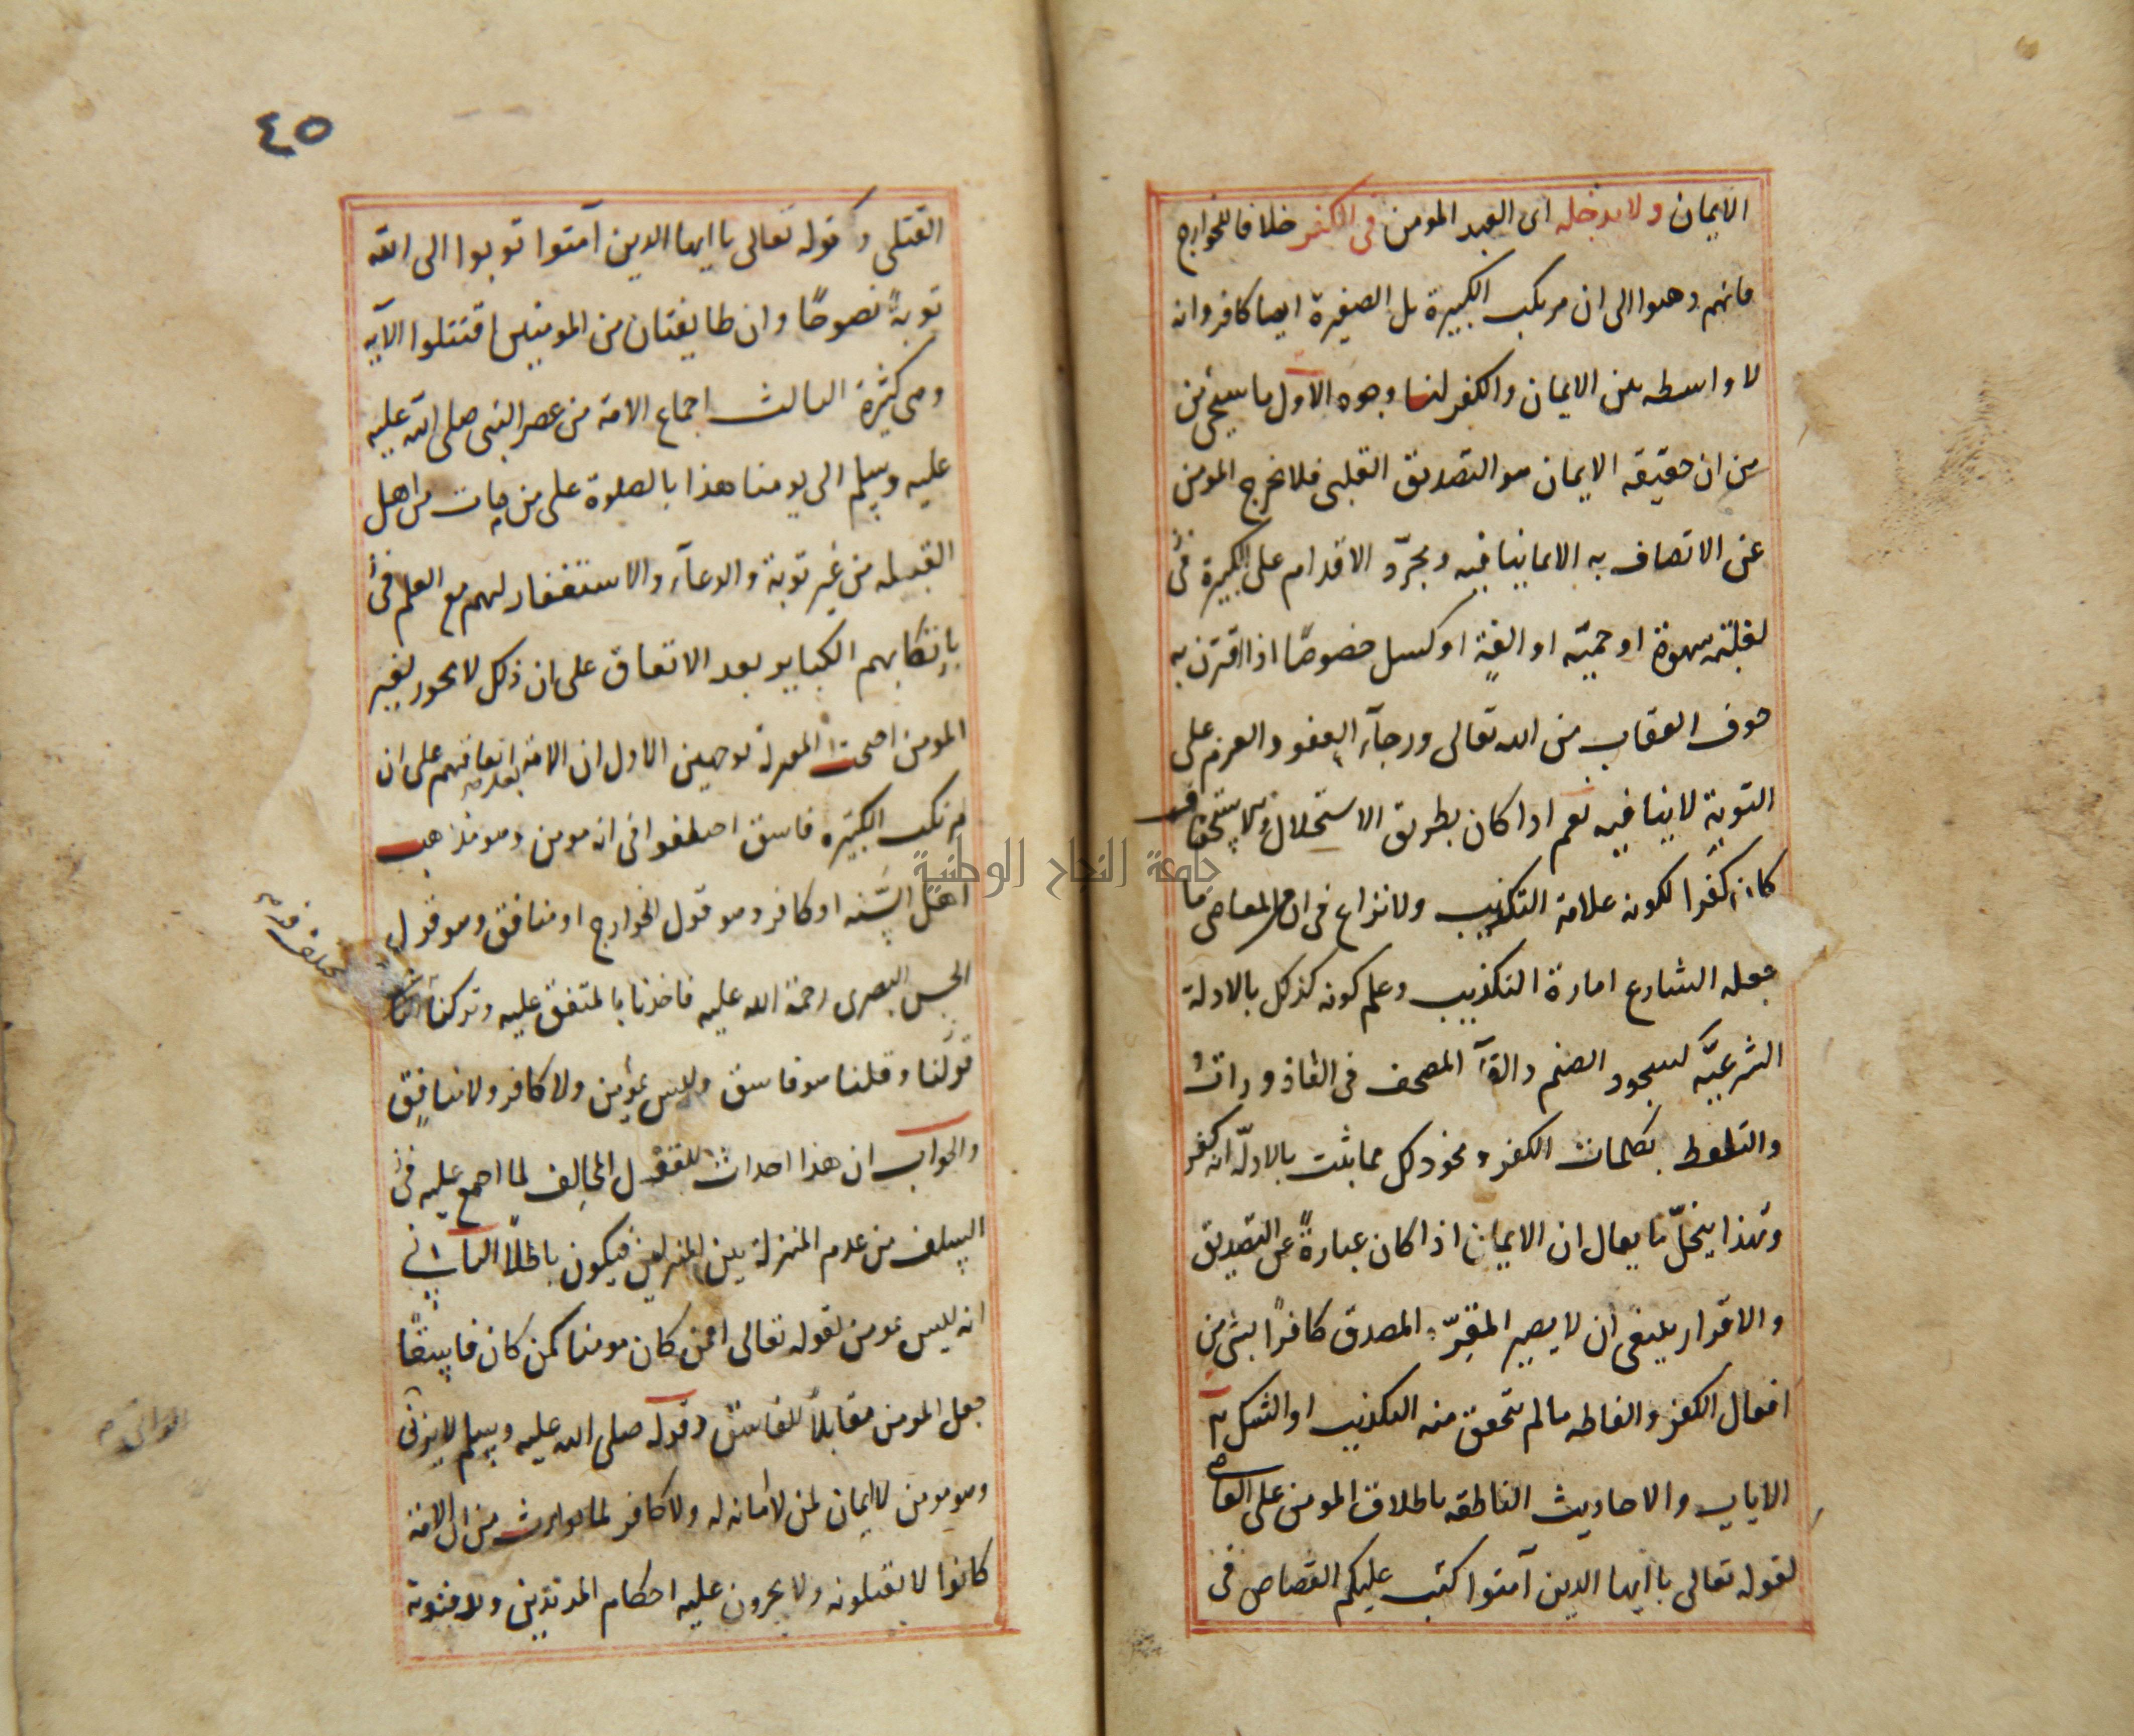 الايمان ولا يدخله اى العبد المومن فى الكفر خلافا للخوارج
فانهم ذهبوا الى ان مرتكب الكبيرة بل الصغيرة ايضا كافر وانه
لا واسطه بين الايمان والكفر لنا وجوه الاول ما سيجئ من
من ان حقيقه الايمان هو التصديق القلبى فلا يخرج المومن
عن الاتصاف به الا بما ينافيه ومجرّد الاقدام على الكبيرة فى
لغلبة شهوة او حميّه او انفة او كسل خصوصًا اذا اقترن به
خوف العقاب من الله تعالى ورجآء العفو والعزم على
التوبة لا ينافيه نعم اذا كان بطريق الاستحلال والاستخفاف
كان كفرا لكونه علامة التكذيب ولا نزاع فى ان من المعاصى ما
جعله الشارع امارة التكذيب وعلم كونه كذلك بالادلة
الشرعيّه كسجود الصنم والقآ المصحف فى القاذورات
والتلفظ بكلمات الكفر ونحو ذلك مما يثبت بالادلّة انه كفر
وبهذا ينحلّ ما يقال ان الايمان اذا كان عبارةً عن التصديق
والاقرار ينبغى ان لا يصير المقرّ المصدق كافرًا بشئ من
افعال الكفر والفاظه ما لم يتحقق منه التكذيب او الشك
الايات والاحاديث الناطقه باطلاق المومن على العاصى
لقوله تعالى يا ايها الدين آمنوا كتب عليكم القصاص فى
٤٥
القتلى وقوله تعالى يا ايها الدين آمنوا توبوا الى الله
توبةً نصوحًا وان طايفتان من المومنين اقتتلوا الآيه
وهى كثيرة الثالث اجماع الامة من عصر النبى صلى الله عليه
عليه وسلم الى يومنا هذا بالصلوة على من مات من اهل
القبله من غير توبة والدعآء والاستغفار لهم مع العلم فى
بارتكابهم الكباير بعد الاتفاق على ان ذلك لا يجوز لغير
المومن احتجت المعتزلة بوجهين الاول ان الامة بعد اتفاقهم على ان
مرتكب الكبيره فاسق اختلفوا فى انه مومن وهو مذهب
اهل السّنه او كافر وهو قول الخوارج او منافق وهو قول
الحسن البصرى رحمة الله عليه فاخذنا بالمتفق عليه وتركنا
المختلف فيه
قولنا وقلنا هو فاسق وليس بمؤمن ولا كافر ولا منافق
والجواب ان هذا احداث للقول المخالف لما اجمع عليه فى
السلف من عدم المنزلة بين المنزلتين فيكون باطلاً الثانى
انه ليس بمومن لقوله تعالى افمن كان مومنا كمن كان فاسقًا
جعل المومن مقابلاً للفاسق وقوله صلى الله عليه وسلم لا يزنى
وهو مومن لا ايمان لمن لا امانه له ولا كافر لما توارث من ان الامة
كانوا لا يقتلونه ولا يجرون عليه احكام المرتدين ويدفنونه
جامعة النجاح الوطنية